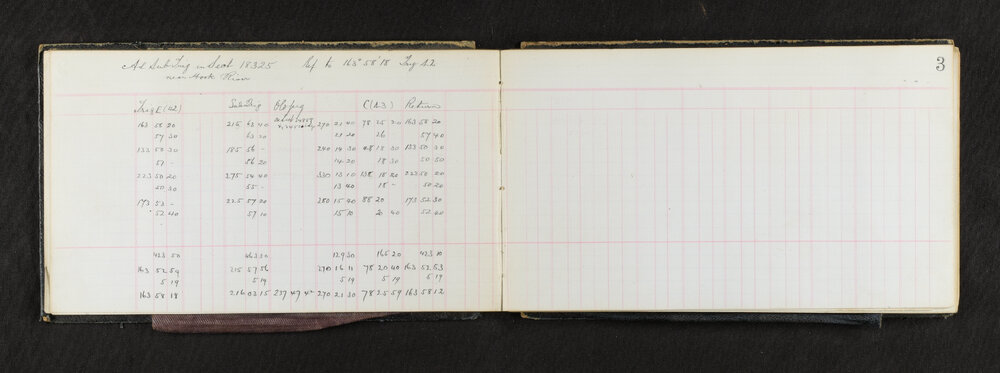 At Sub Trig in Sect 18325 Ref to 163° 58' 18 Trig S.2
near Hook River
3
Trig E (42) Sub Trig Obs peg C (A3) Return
163 58 20 215 63 40 270 21 40 78 25 20 163 58 20
57 30 63 20 21 20 26 57 40
133 50 30 185 56 - 240 14 30 48 18 30 133 50 30
51 - 56 20 14 20 18 30 50 50
223 50 20 275 54 40 330 13 10 138 18 20 223 50 20
50 30 55 - 13 40 18 - 50 20
173 53 - 225 57 20 280 15 40 88 20 173 52 30
52 40 57 10 15 10 20 40 52 40
423 50 463 30 129 30 165 20 423 10
163 52 59 215 57 56 270 16 11 78 20 40 163 52 53
5 19 5 19 5 19 5 19 5 19
163 58 18 216 03 15 237 47 42 270 21 30 78 25 59 163 58 12